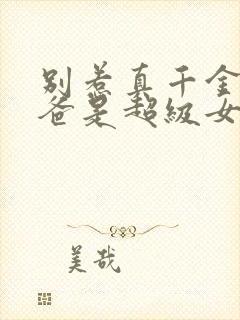 别惹真千金
爸是超级女
美哉